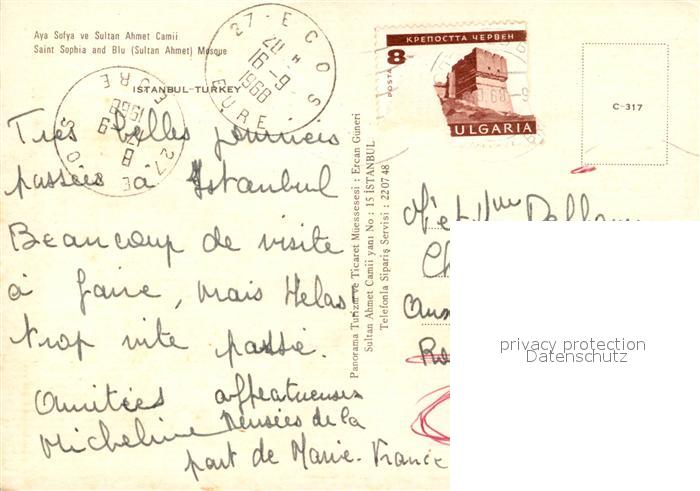 Aya Sofya ve Sultan Ahmet Camii
Saint Sophia and Blu (Sultan Ahmet) Mosque
ISTANBUL-TURKEY
27-ECOS
20 H
16-9
1968
EURE
27-ECOS
1968
EURE
КРЕПОСТТА ЧЕРВЕН
8
POSTA
BULGARIA
C-317
Tres belles journées
passées à Istanbul
Beaucoup de visite
à faire, mais Helas!
trop vite passé.
Amitiées affectueuses
Micheline Pensées de la
part de Marie-France
Panorama Turizm ve Ticaret Müessesesi : Ercan Güneri
Sultan Ahmet Camii yanı No : 15 İSTANBUL
Telefonla Sipariş Servisi : 22 07 48
privacy protection
Datenschutz